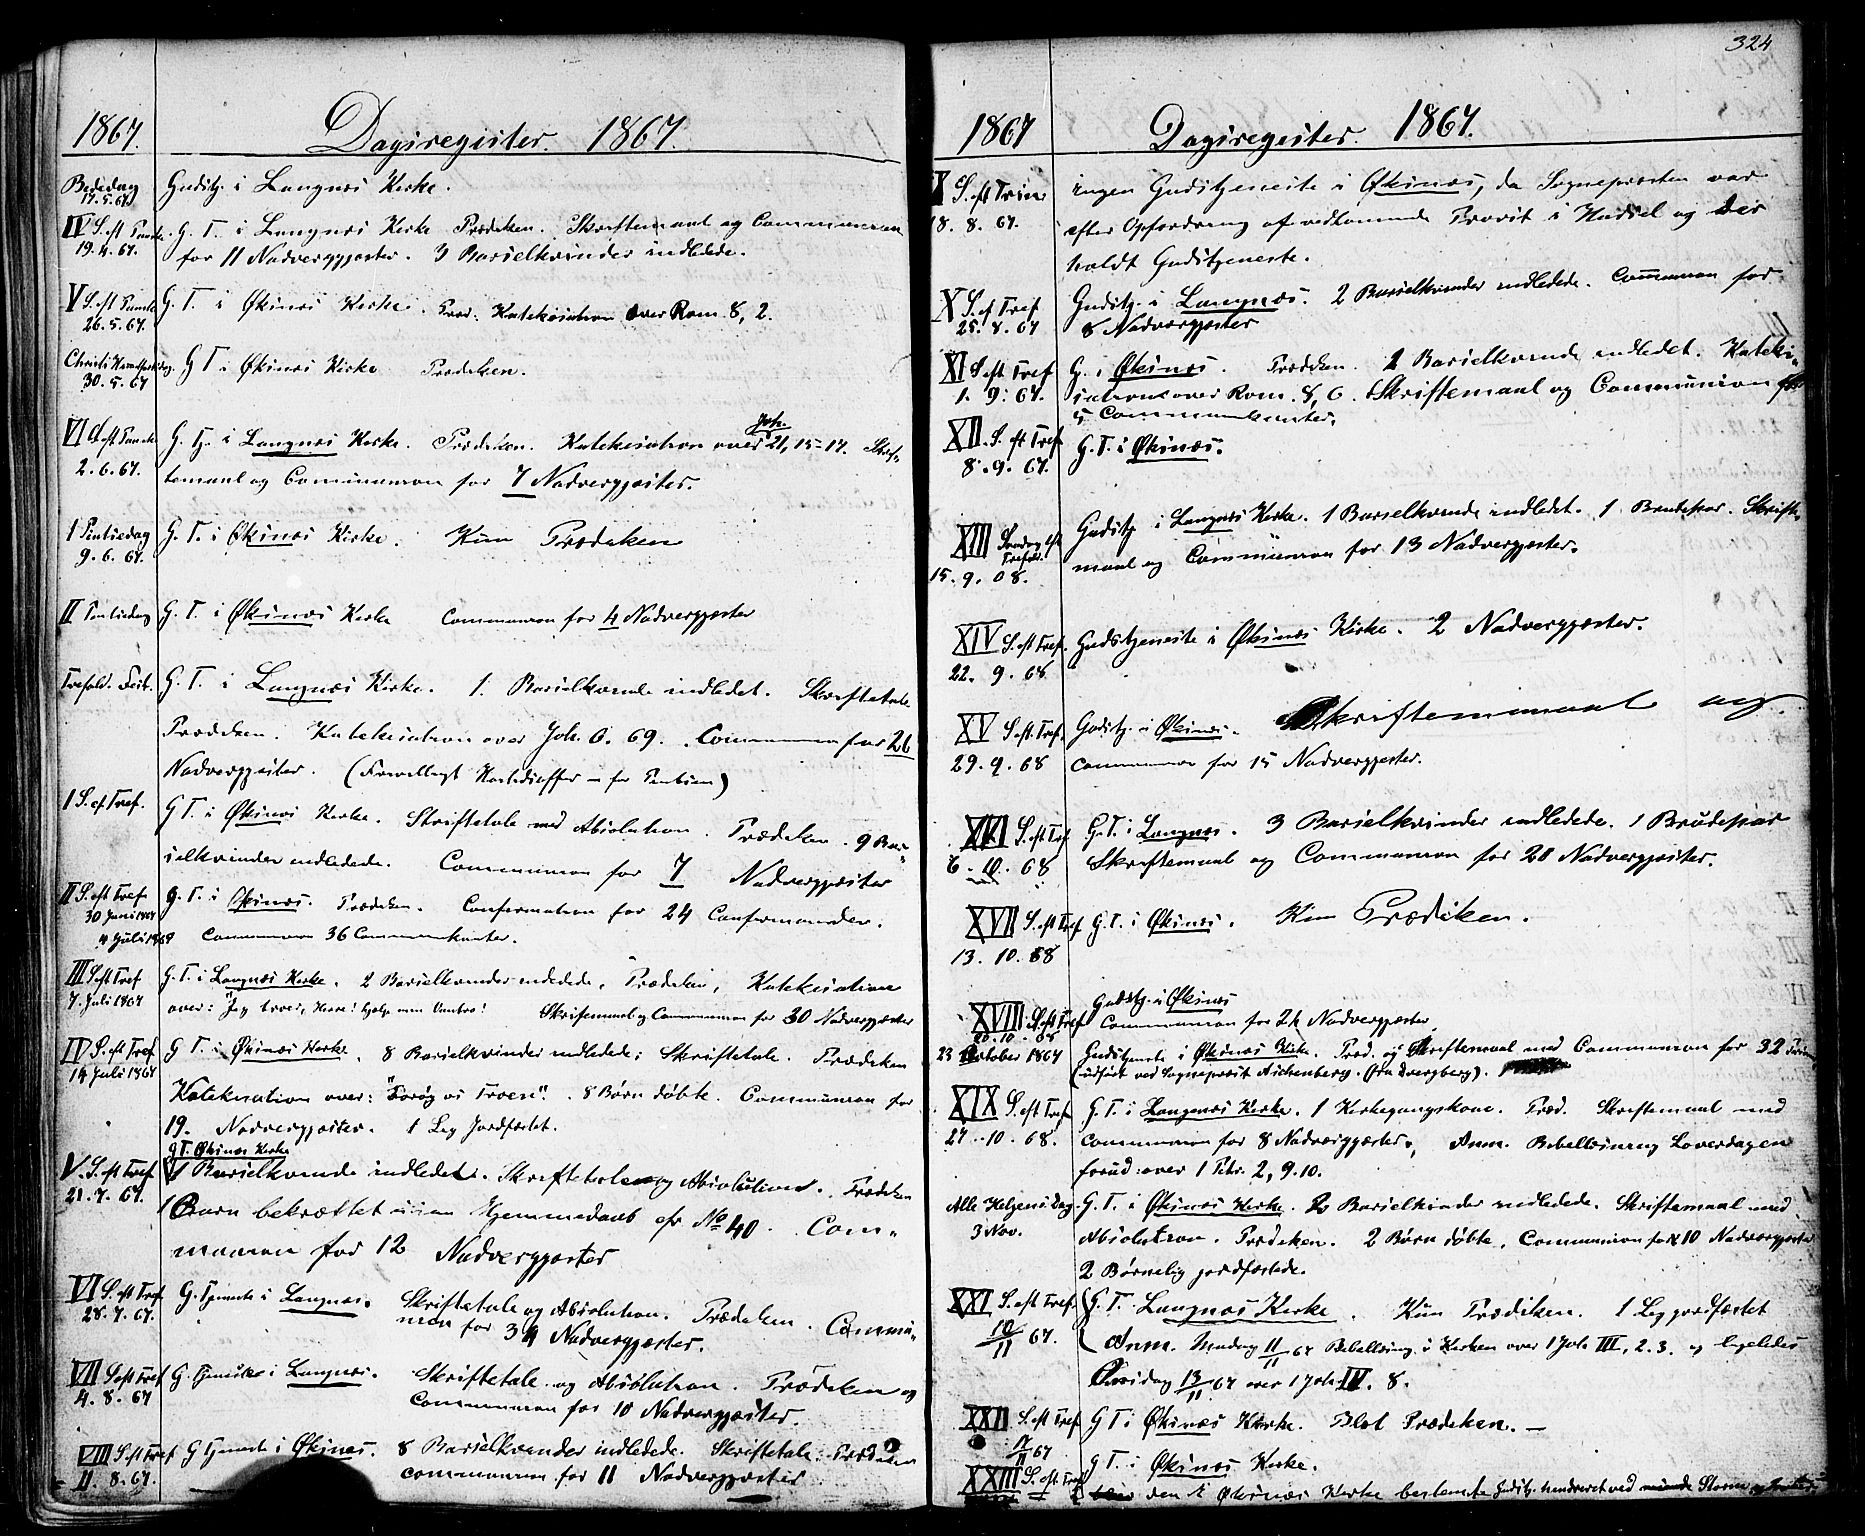 1867.
Dagsregister. 1867.
Bededag
17.5.67.
Gudstj. i Langnæs Kirke.
IV S. eft Paaske
19.4.67.
G. T. i Langnæs Kirke Prædiken. Skriftemaal og Communion
for 11 Nadvergjæster. 3 Barselkvinder indledede.
V S. eft Paaske
26.5.67.
G. T. i Øksnæs Kirke. Præd. Katekisation over Rom. 8, 2.
Christi Himmelfartsdag
30.5.67
G T. i Øksnæs Kirke Prædiken.
VI S. eft Paaske
2.6.67.
G. Tj. i Langnæs Kirke. Prædiken. Katekisation over Joh. 21, 15-17. Skrif-
temaal og Communion for 7 Nadvergjæster.
1 Pintsedag
9.6.67.
G. T. i Øksnæs Kirke. Kun Prædiken
II Pintsedag
G. T. i Øksnæs Kirke Communion for 4 Nadvergjæster
Trefold. Fest.
G. T. i Langnæs Kirke. 1. Barselkvinde indledet. Skriftetale
Prædiken. Katekisation over Joh. 6. 69. Communion for 26
Nadvergjæster. (Frivilligt for Pintsen)
1 S. ef Tref.
G T. i Øksnæs Kirke. Skriftetale med Absolution. Prædiken. 9 Bar-
selkvinder indledede. Communion for 7 Nadvergjæster
II S. eft Tref
30 Juni 1867
4 Juli 1867
G. T. i Øksnæs. Prædiken. Confirmation for 24 Confirmander.
Communion 36 Communikanter.
III S eft Tref
7. Juli 1867
G. T. i Langnæs Kirke. 2 Barselkvinder indledede. Prædiken, Katekisation
over: "Jeg troer, Herre! hjelp min Vantro! Skriftemaal og Communion for 30 Nadvergjæster
IV S. eft Tref
14 Juli 1867
G T. i Øksnæs Kirke. 8 Barselkvinder indledede; Skriftetale. Prædiken
Katekisation over: "Forøg os Troen". 8 Børn døbte. Communion for
19. Nadvergjæster. 1 Lig Jordfæstet.
G T. Øksnæs Kirke
V. S. eft Tref
21.7.67.
1 Barselkvinde indledet. Skriftetale og Absolution. Prædiken
1 Barn bekræftet i sin Hjemmedaab efr No 40. Com-
munion for 12 Nadvergjæster
VI S. eft Tref.
28.7.67.
G. Tjeneste i Langnæs. Skriftetale og Absolution. Prædiken. Commu-
nion for 34 Nadvergjæster.
VII S eft Tref
4.8.67
G. Tjeneste i Langnæs. Skriftetale og Absolution. Prædiken og
Communion for 10 Nadvergjæster.
VIII S eft Tref
11.8.67.
G Tjeneste i Øksnæs. 8 Barselkvinder indledede. Skriftetale. Prædiken
Communion for 11 Nadvergjæster
324
1867
Dagsregister. 1867.
S. eft Trin
18.8.67.
ingen Gudstjeneste i Øksnæs, da Sognepræsten var
efter Opfordring af vedkommende Provst i Hadsel og der
holdt Gudstjeneste.
X S. ef Tref
25.8.67
Gudstj. i Langnæs. 2 Barselkvinder indledede. Communion for
8 Nadvergjæster
XI S eft Tref
1.9.67.
G. i Øksnæs. Prædiken. 1 Barselkvinde indledet. Kateki-
sation over Rom. 8, 6. Skriftemaal og Communion for
5 Communikanter.
XII. S. eft Tref
8.9.67.
G. T. i Øksnæs.
XIII Søndag eft
Trefold.
15.9.68.
Gudstj i Langnæs Kirke. 1 Barselkvinde indledet. 1 Brudepar. Skrifte-
maal og Communion for 13 Nadvergjæster.
XIV S. eft Tref.
22.9.68
Gudstjeneste i Øksnæs Kirke. 2 Nadvergjæster.
XV S. eft. Tref.
29.9.68
Gudstj. i Øksnæs. Skriftemaal og
Communion for 15 Nadvergjæster.
XVI S. eft Tref
6.10.68
G. T. i Langnæs. 3 Barselkvinder indledede. 1 Brudepar
Skriftemaal og Communion for 20 Nadvergjæster.
XVII S. eft Tref
13.10.68
G. T. i Øksnæs. Kun Prædiken.
XVIII S. eft Tref
20.10.68
Gudstj. i Øksnæs
Communion for 24 Nadvergjæster
23 October 1867
Gudstjeneste i Øksnæs Kirke. Præd. og Skriftemaal med Communion for 32
(udført ved Sognepræst Aichenberg. (fra Dverberg).
XIX S. eft Tref
27.10.68.
G. T. i Langnæs Kirke. 1 Kirkegangskone. Præd. Skriftemaal med
Communion for 8 Nadvergjæster, Anm. Bibellæsning Løverdagen
forud: over 1 Petr. 2, 9.10.
Alle Helgens Dag.
3 Nov.
G. T. i Øksnæs Kirke. 2 Barselkvinder indledede. Skriftemaal med
Absolution. Prædiken. 2 Børn døbte. Communion for 10 Nadvergjæster
2 Børnelig jordfæstede.
XXI S. eft Tref.
10/11 67.
G. T. Langnæs Kirke. Kun Prædiken. 1 Lig jordfæstet
Anm. Mandag 11/11 67 Bibellæsning i Kirken over 1 Joh III, 2.3. og ligeledes
Onsdag 13/11 67 over 1 Joh. IV. 8.
XXII S. eft Tref
17/11 67
G T. i Øksnæs Kirke. Blot Prædiken. —
XXIII S. eft Tref
G T. i Øksnæs Kirke.
den i Øksnæs Kirke bestemte Gudstj. hindret ved Storm